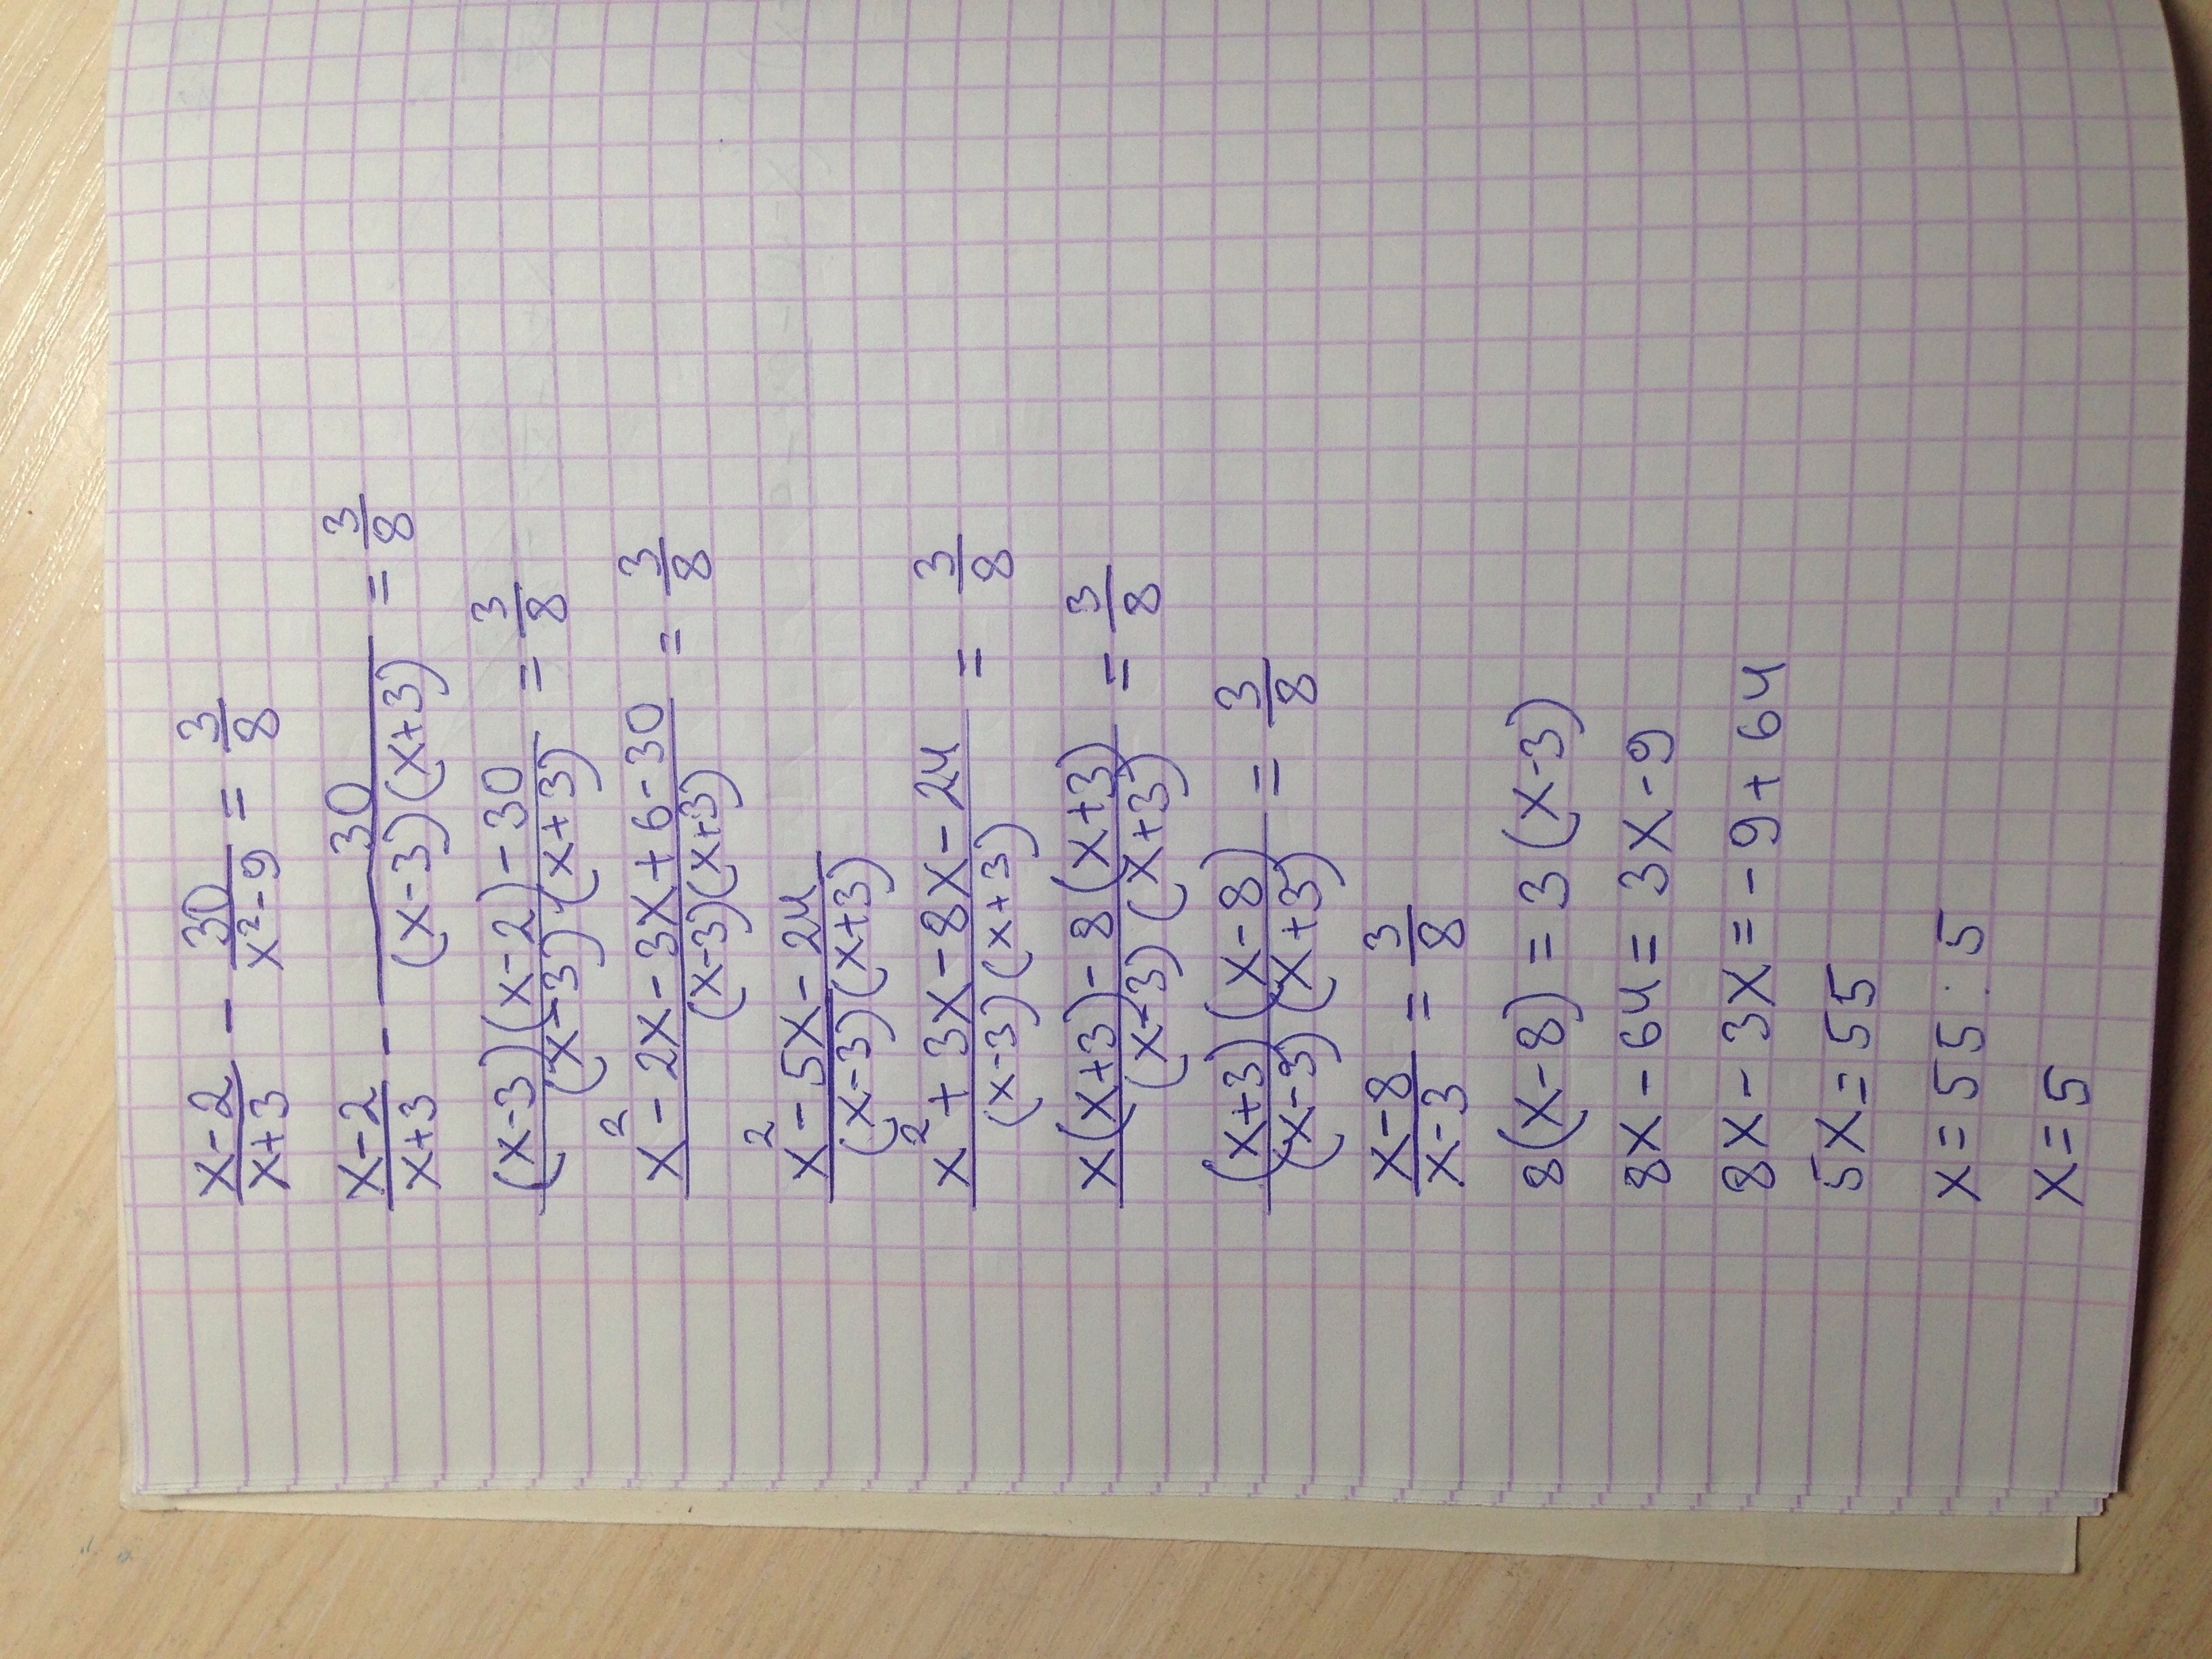 (x-2)/(x+3) - 30/(x²-9) = 3/8
(x-2)/(x+3) - 30/((x-3)(x+3)) = 3/8
((x-3)(x-2)-30)/((x-3)(x+3)) = 3/8
(x²-2x-3x+6-30)/((x-3)(x+3)) = 3/8
(x²-5x-24)/((x-3)(x+3))
(x²+3x-8x-24)/((x-3)(x+3)) = 3/8
(x(x+3)-8(x+3))/((x-3)(x+3)) = 3/8
((x+3)(x-8))/((x-3)(x+3)) = 3/8
(x-8)/(x-3) = 3/8
8(x-8)=3(x-3)
8x-64=3x-9
8x-3x=-9+64
5x=55
x=55:5
x=5